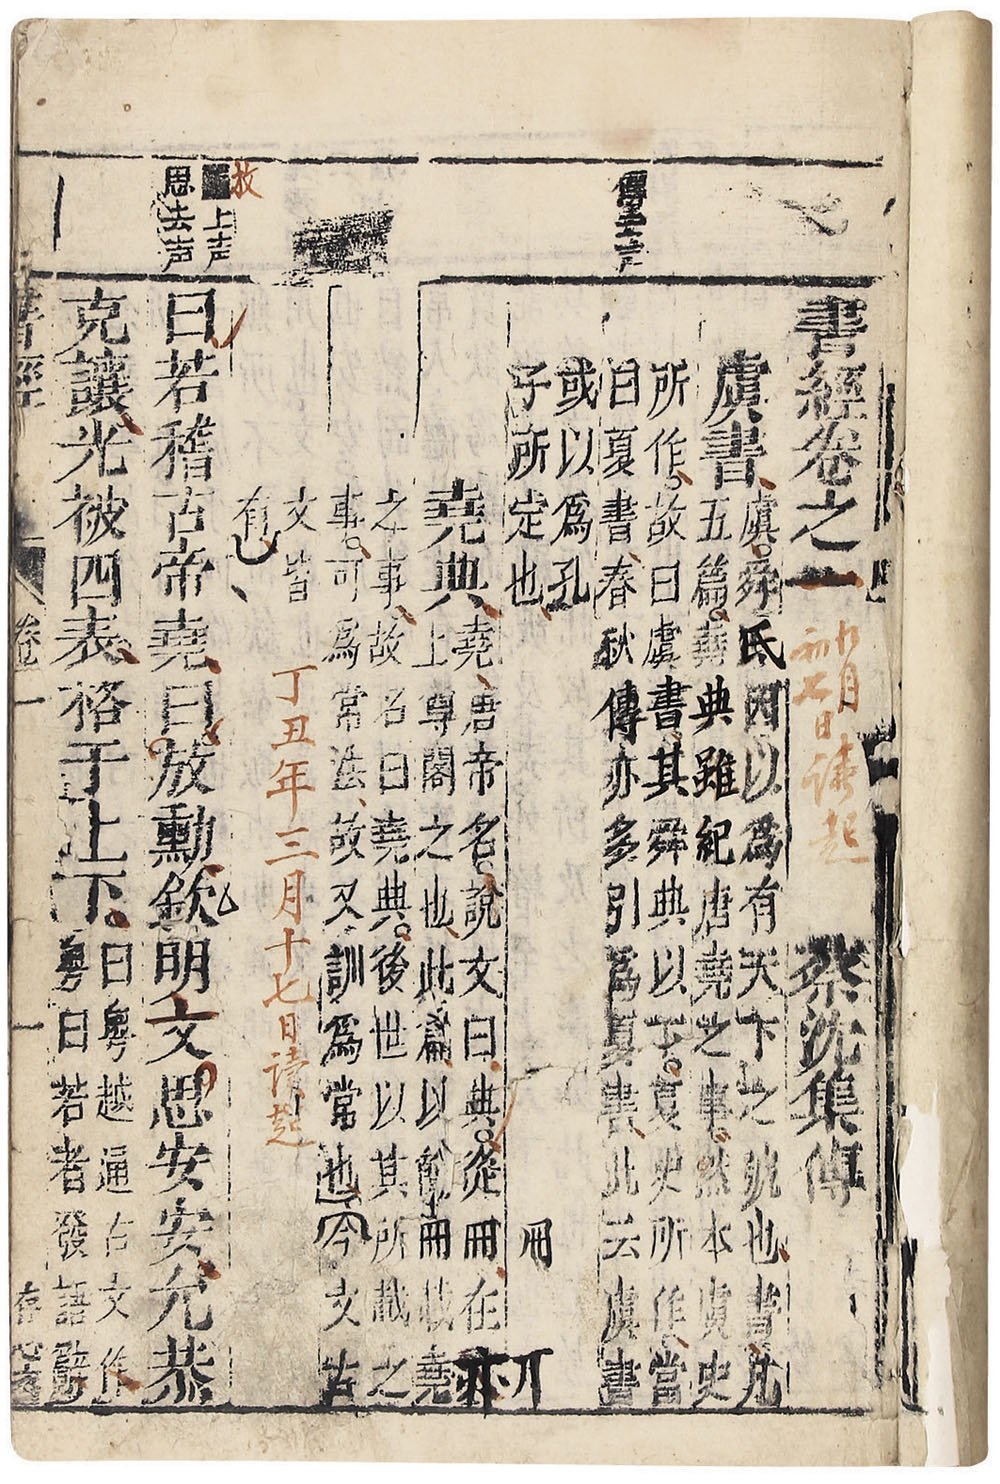 書經卷之一 蔡沈集傳
九月初七日讀起
虞書
虞。舜氏因以為有天下之號也、書凡
五篇。堯典雖紀唐堯之事、然本虞史
所作。故曰虞書、其舜典以下。夏史所作、當
曰夏書、春秋傳亦多引為夏書、此云虞書
或以為孔
子所定也、
傳去声
冊
丌
堯典
堯、唐帝名。說文曰、典。從冊、在亦
上、尊閣之也、此篇、以簡冊載堯
之事、故名曰堯典。後世以其所載之
事。可為常法、故又訓為常也、今文古
文皆
有
丁丑年三月十七日讀起
放上声
思去声
曰若稽古帝堯、曰放勳、欽明文思安安、允恭
克讓、光被四表、格于上下。
曰粵越通古文作
粵曰若者發語辭
書經
卷一
一